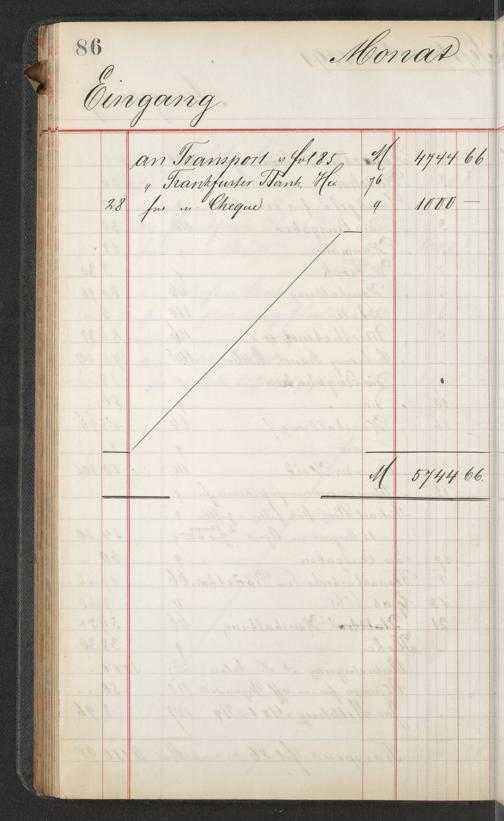 86
Monat
Eingang
an Transport v fol 85 M 4744 66
" Frankfurter Bank 76
28 " Cheque " 1000 —
M 5744 66.